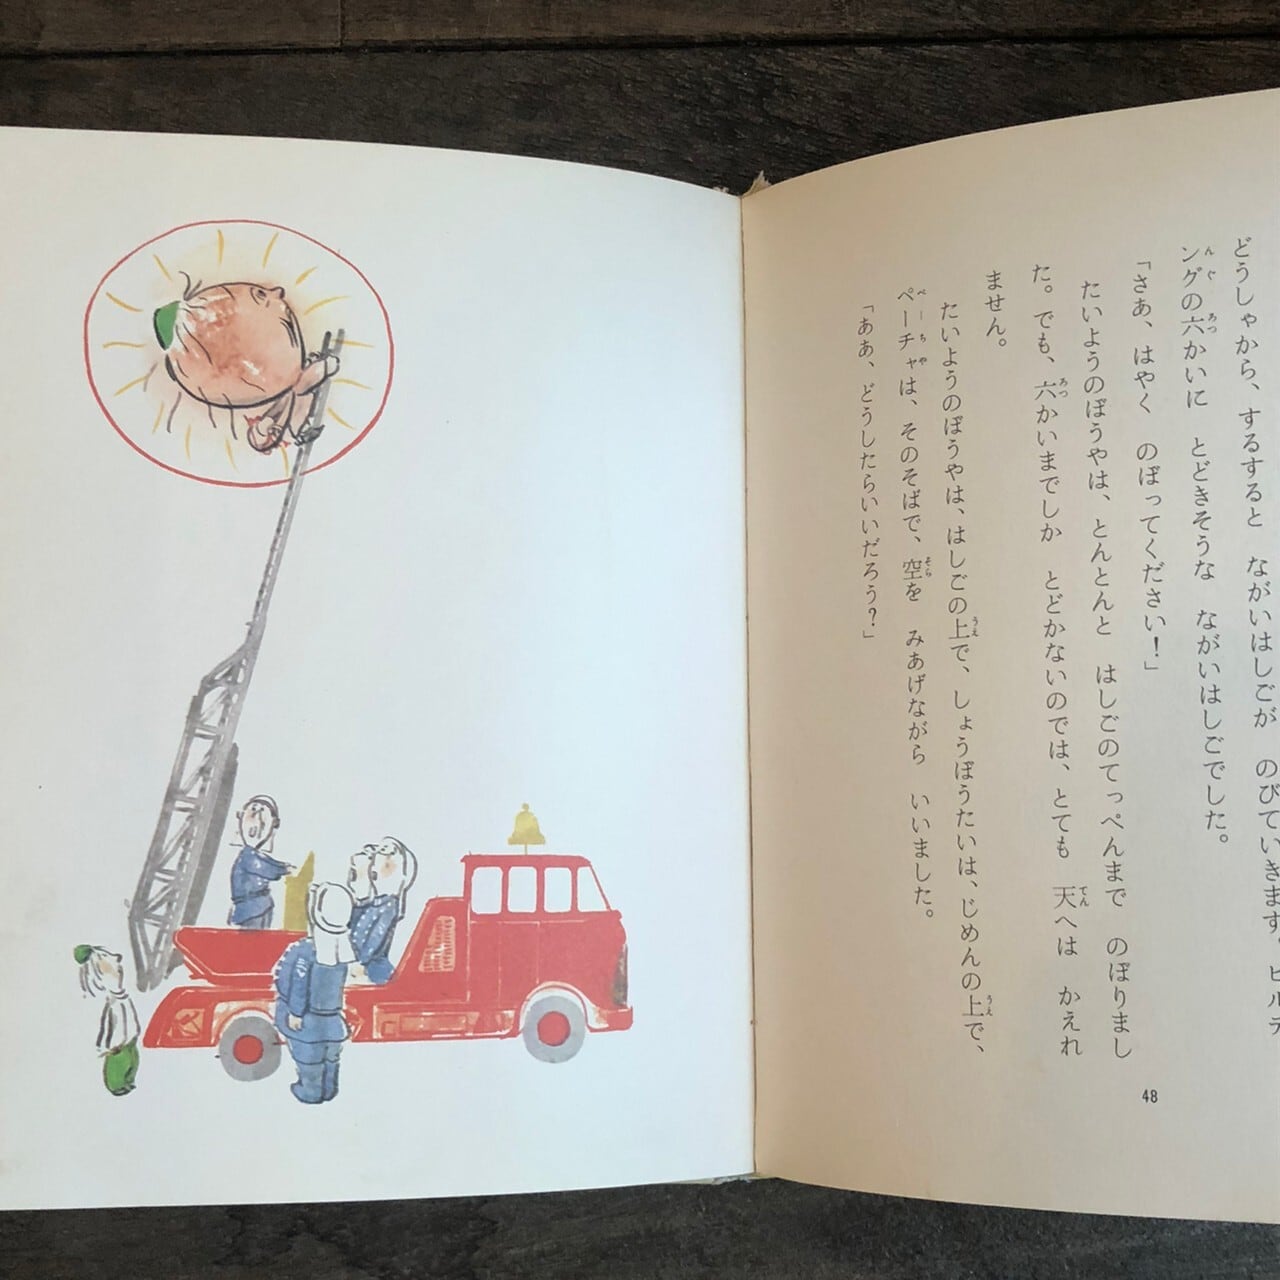 どうしゃから、するすると　ながいはしごが　のびていきます。ビルデ
ングの六かいに　とどきそうな　ながいはしごでした。
「さあ、はやく　のぼってください！」
たいようのぼうやは、とんとんと　はしごのてっぺんまで　のぼりまし
た。でも、六かいまでしか　とどかないのでは、とても　天へは　かえれ
ません。
たいようのぼうやは、はしごの上で、しょうぼうたいは、じめんの上で、
ペーチャは、そのそばで、空を　みあげながら　いいました。
「ああ、どうしたらいいだろう？」
48